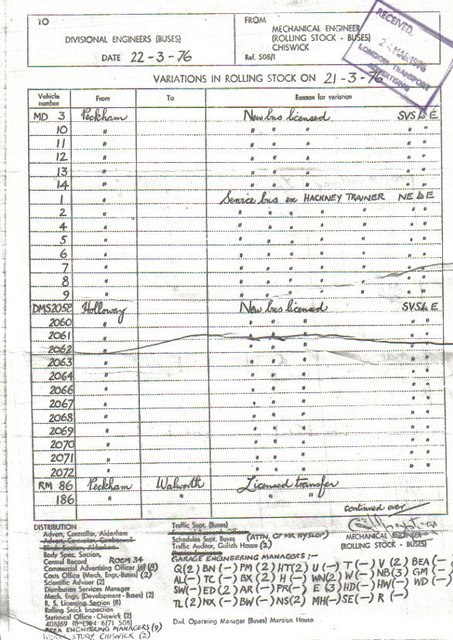 TO
DIVISIONAL ENGINEERS (BUSES)
DATE 22-3-76
FROM
MECHANICAL ENGINEER
(ROLLING STOCK - BUSES)
CHISWICK
Ref. 508/1
RECEIVED
24 MAR 1976
LONDON TRANSPORT
ADVERTISING
VARIATIONS IN ROLLING STOCK ON 21-3-76
Vehicle number From To Reason for variation
MD 3 Peckham New bus licensed SVS L E
10 " " " " " "
11 " " " " " "
12 " " " " " "
13 " " " " " "
14 " " " " " "
1 " Service bus ex HACKNEY TRAINER NE L E
2 " " " " " " " "
4 " " " " " " " "
5 " " " " " " " "
6 " " " " " " " "
7 " " " " " " " "
8 " " " " " " " "
9 " " " " " " " "
DMS2058 Holloway New bus licensed SVS L E
2060 " " " " " "
2061 " " " " " "
2062 " " " " " "
2063 " " " " " "
2064 " " " " " "
2066 " " " " " "
2067 " " " " " "
2068 " " " " " "
2069 " " " " " "
2070 " " " " " "
2071 " " " " " "
2072 " " " " " "
RM 86 Peckham Walworth Licensed transfer
186 " " " "
continued over
MECHANICAL ENGINEER
(ROLLING STOCK - BUSES)
DISTRIBUTION
Advert. Controller, Aldenham
Body Spec. Section,
Central Record ROOM 34
Commercial Advertising Officer (8)
Costs Office (Mech. Engr.-Buses) (2)
Scientific Adviser (2)
Distribution Services Manager
Mech. Engr. (Development - Buses) (2)
R. S. Licensing Section (8)
Rolling Stock Inspection
Statistical Office - Chiswick (2)
AREA ENGINEERING MANAGERS (9)
WORK STUDY, CHISWICK (2)
Traffic Supt. (Buses)
Schedules Supt. Buses (ATTN. OF MR HYSLOP)
Traffic Auditor, Griffith House (2)
GARAGE ENGINEERING MANAGERS :-
Q(2) BN(-) PM(2) HT(2) U(-) T(-) V(2) BEA(-)
AL(-) TC(-) BX(2) H(-) WN(2) W(-) NB(3) GM(-)
SW(-) ED(2) AR(-) PR(-) E(3) HD(-) HW(-) WD(-)
TL(2) NX(-) BW(-) NS(2) MH(-) SE(-) R(-)
Divl. Operating Manager (Buses) Mansion House